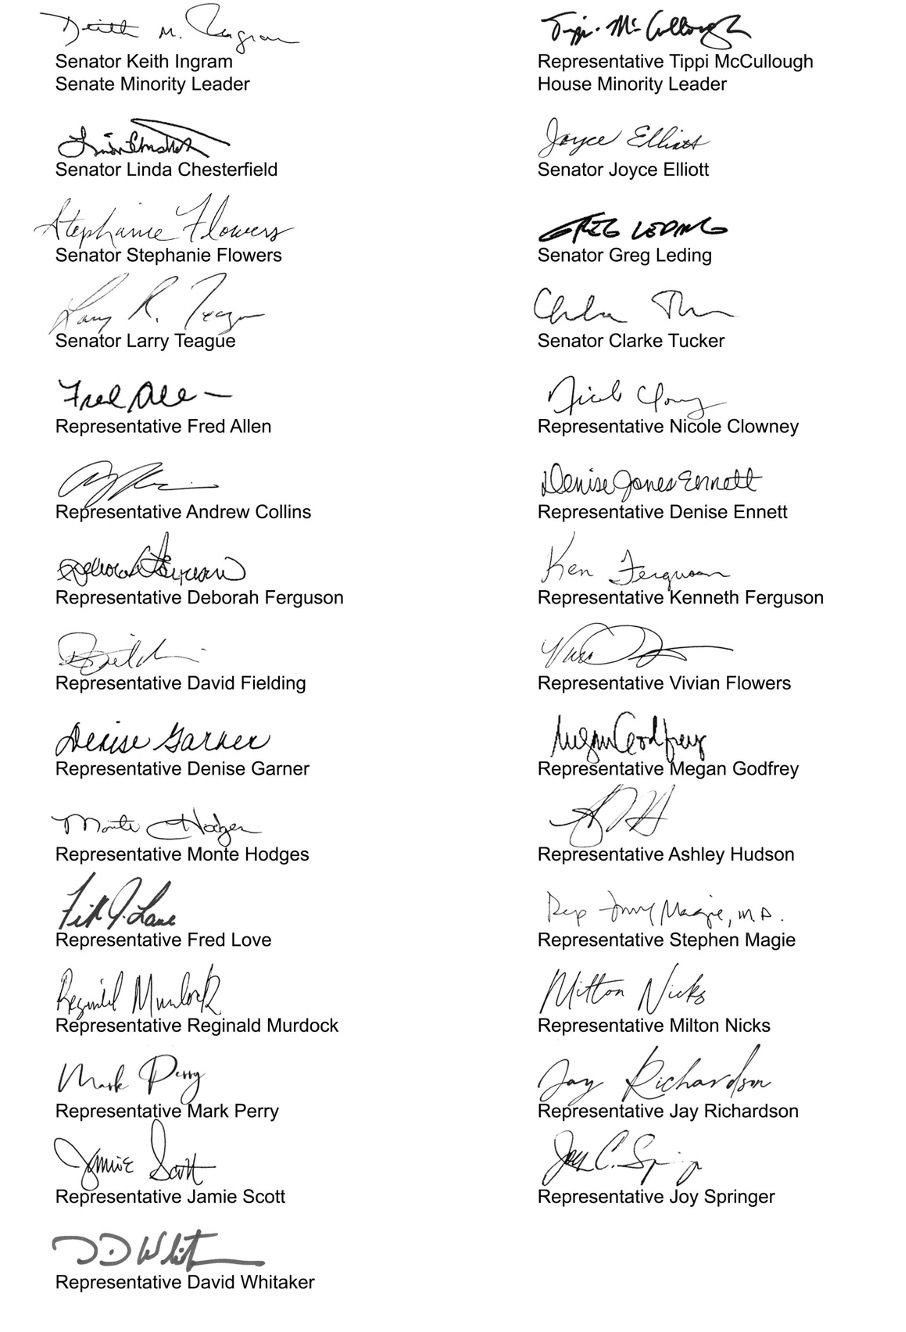 Keith M. Ingram
Senator Keith Ingram
Senate Minority Leader
Tippi McCullough
Representative Tippi McCullough
House Minority Leader
Linda Chesterfield
Senator Linda Chesterfield
Joyce Elliott
Senator Joyce Elliott
Stephanie Flowers
Senator Stephanie Flowers
GREG LEDING
Senator Greg Leding
Larry R. Teague
Senator Larry Teague
Senator Clarke Tucker
Fred Allen
Representative Fred Allen
Nicole Clowney
Representative Nicole Clowney
Representative Andrew Collins
Denise Jones Ennett
Representative Denise Ennett
Deborah Ferguson
Representative Deborah Ferguson
Ken Ferguson
Representative Kenneth Ferguson
Representative David Fielding
Representative Vivian Flowers
Denise Garner
Representative Denise Garner
Megan Godfrey
Representative Megan Godfrey
Monte Hodges
Representative Monte Hodges
Representative Ashley Hudson
Representative Fred Love
Rep Magie, M.D.
Representative Stephen Magie
Reginald Murdock
Representative Reginald Murdock
Milton Nicks
Representative Milton Nicks
Mark Perry
Representative Mark Perry
Jay Richardson
Representative Jay Richardson
Jamie Scott
Representative Jamie Scott
Joy C. Springer
Representative Joy Springer
D. Whitaker
Representative David Whitaker